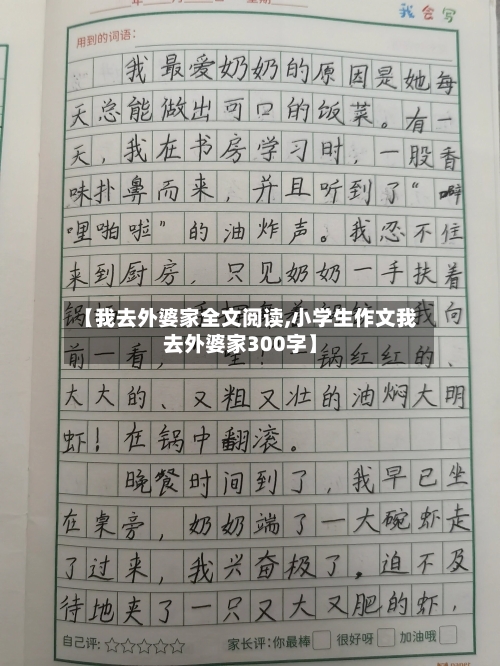 年 星期 我会写
用到的词语：
我最爱奶奶的原因是她每
天总能做出可口的饭菜。有一
天，我在书房学习时，一股香
味扑鼻而来，并且听到了“噼
哩啪啦”的油炸声。我忍不住
来到厨房，只见奶奶一手扶着
锅 我向
【我去外婆家全文阅读,小学生作文我
前一看， 锅红红的、
去外婆家300字】
大大的、又粗又壮的油焖大明
虾！在锅中翻滚。
晚餐时间到了，我早已坐
在桌旁，奶奶端了一大碗虾走
了过来，我兴奋极了，迫不及
待地夹了一只又大又肥的虾，
自己评：☆☆☆☆☆ 家长评：你最棒 很好呀 加油哦